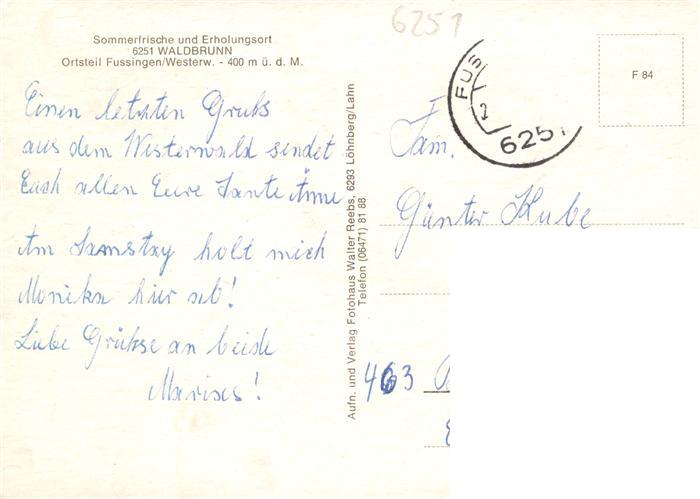 6251
Sommerfrische und Erholungsort
6251 WALDBRUNN
Ortsteil Fussingen/Westerw. - 400 m ü. d. M.
Einen letzten Gruß
aus dem Westerwald sendet
Euch allen Eure Tante Änne
Am Samstag holt mich
Monika hier ab!
Liebe Grüße an beide
Aufn. und Verlag Fotohaus Walter Reebs, 6293 Löhnberg/Lahn
Telefon (06471) 81 88
FUS
6251
F 84
Fam.
Günter Kube
463